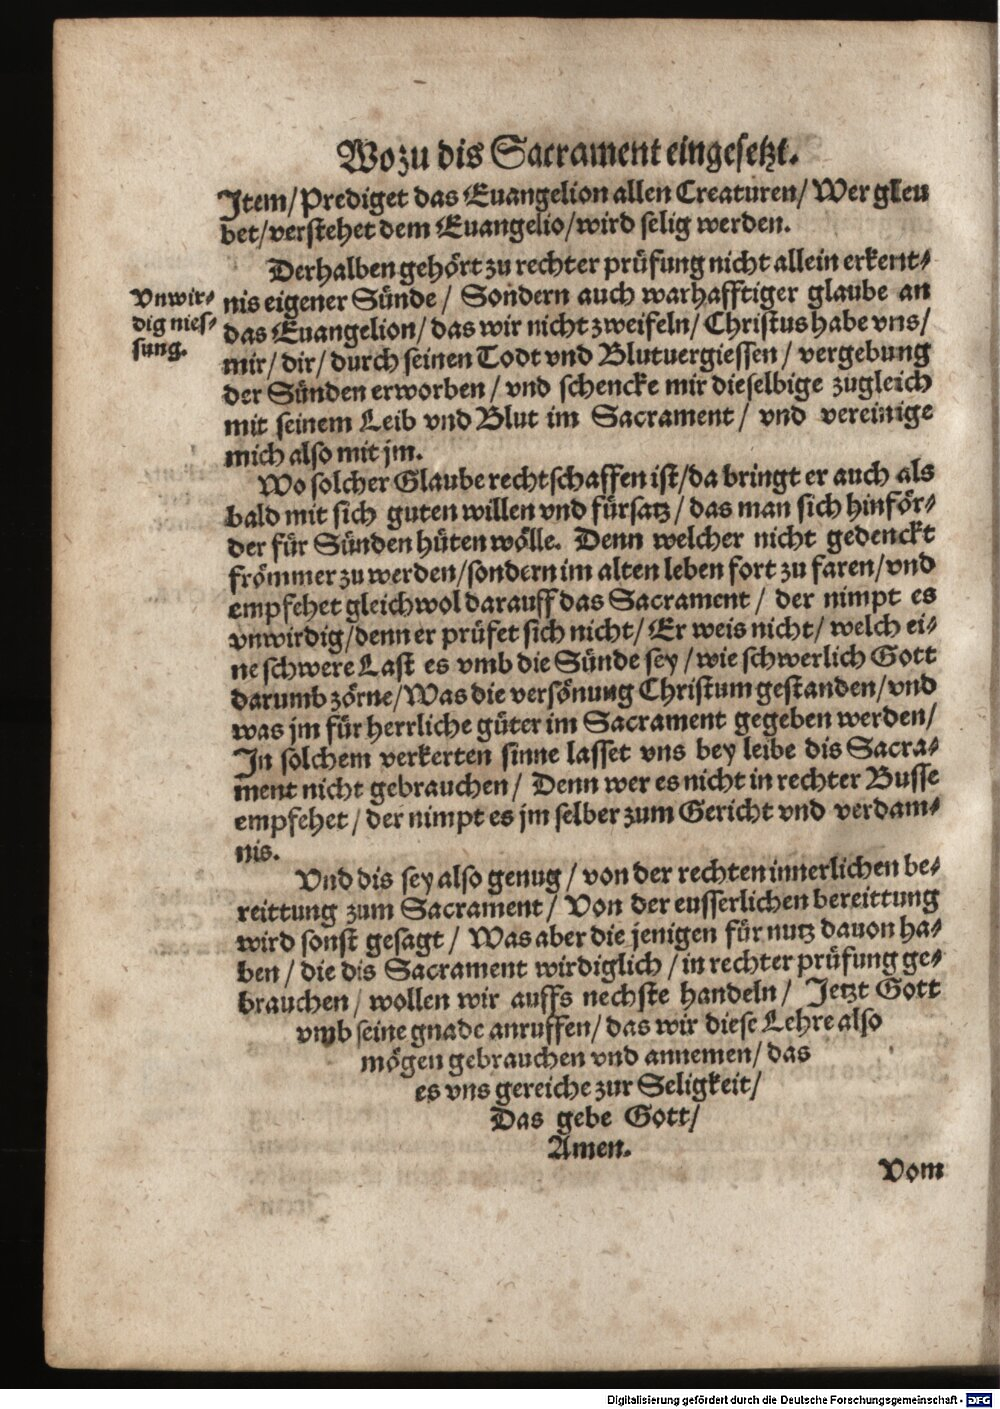 Wozu dis Sacrament eingesetzt.
Item/Prediget das Euangelion allen Creaturen/Wer gleu
bet/verstehet dem Euangelio/wird selig werden.
Derhalben gehört zu rechter prüfung nicht allein erkent-
nis eigener Sünde/ Sondern auch warhafftiger glaube an
das Euangelion/das wir nicht zweifeln/Christus habe vns/
mir/dir/durch seinen Todt vnd Blutuergiessen/vergebung
der Sünden erworben/vnd schencke mir dieselbige zugleich
mit seinem Leib vnd Blut im Sacrament/ vnd vereinige
mich also mit jm.
Vnwir-
dig nies-
sung.
Wo solcher Glaube rechtschaffen ist/da bringt er auch als
bald mit sich guten willen vnd fürsatz/das man sich hinför-
der für Sünden hüten wölle. Denn welcher nicht gedenckt
frömmer zu werden/sondern im alten leben fort zu faren/vnd
empfehet gleichwol darauff das Sacrament/ der nimpt es
vnwirdig/denn er prüfet sich nicht/ Er weis nicht/welch ei-
ne schwere Last es vmb die Sünde sey/wie schwerlich Gott
darumb zörne/Was die versönung Christum gestanden/vnd
was jm für herrliche güter im Sacrament gegeben werden/
In solchem verkerten sinne lasset vns bey leibe dis Sacra-
ment nicht gebrauchen/ Denn wer es nicht in rechter Busse
empfehet/der nimpt es jm selber zum Gericht vnd verdam-
nis.
Vnd dis sey also genug/von der rechten innerlichen be-
reittung zum Sacrament/ Von der eusserlichen bereittung
wird sonst gesagt/ Was aber die jenigen für nutz dauon ha-
ben/die dis Sacrament wirdiglich/in rechter prüfung ge-
brauchen/ wollen wir auffs nechste handeln/ Jetzt Gott
vmb seine gnade anruffen/das wir diese Lehre also
mögen gebrauchen vnd annemen/das
es vns gereiche zur Seligkeit/
Das gebe Gott/
Amen.
Vom
Digitalisierung gefördert durch die Deutsche Forschungsgemeinschaft - DFG